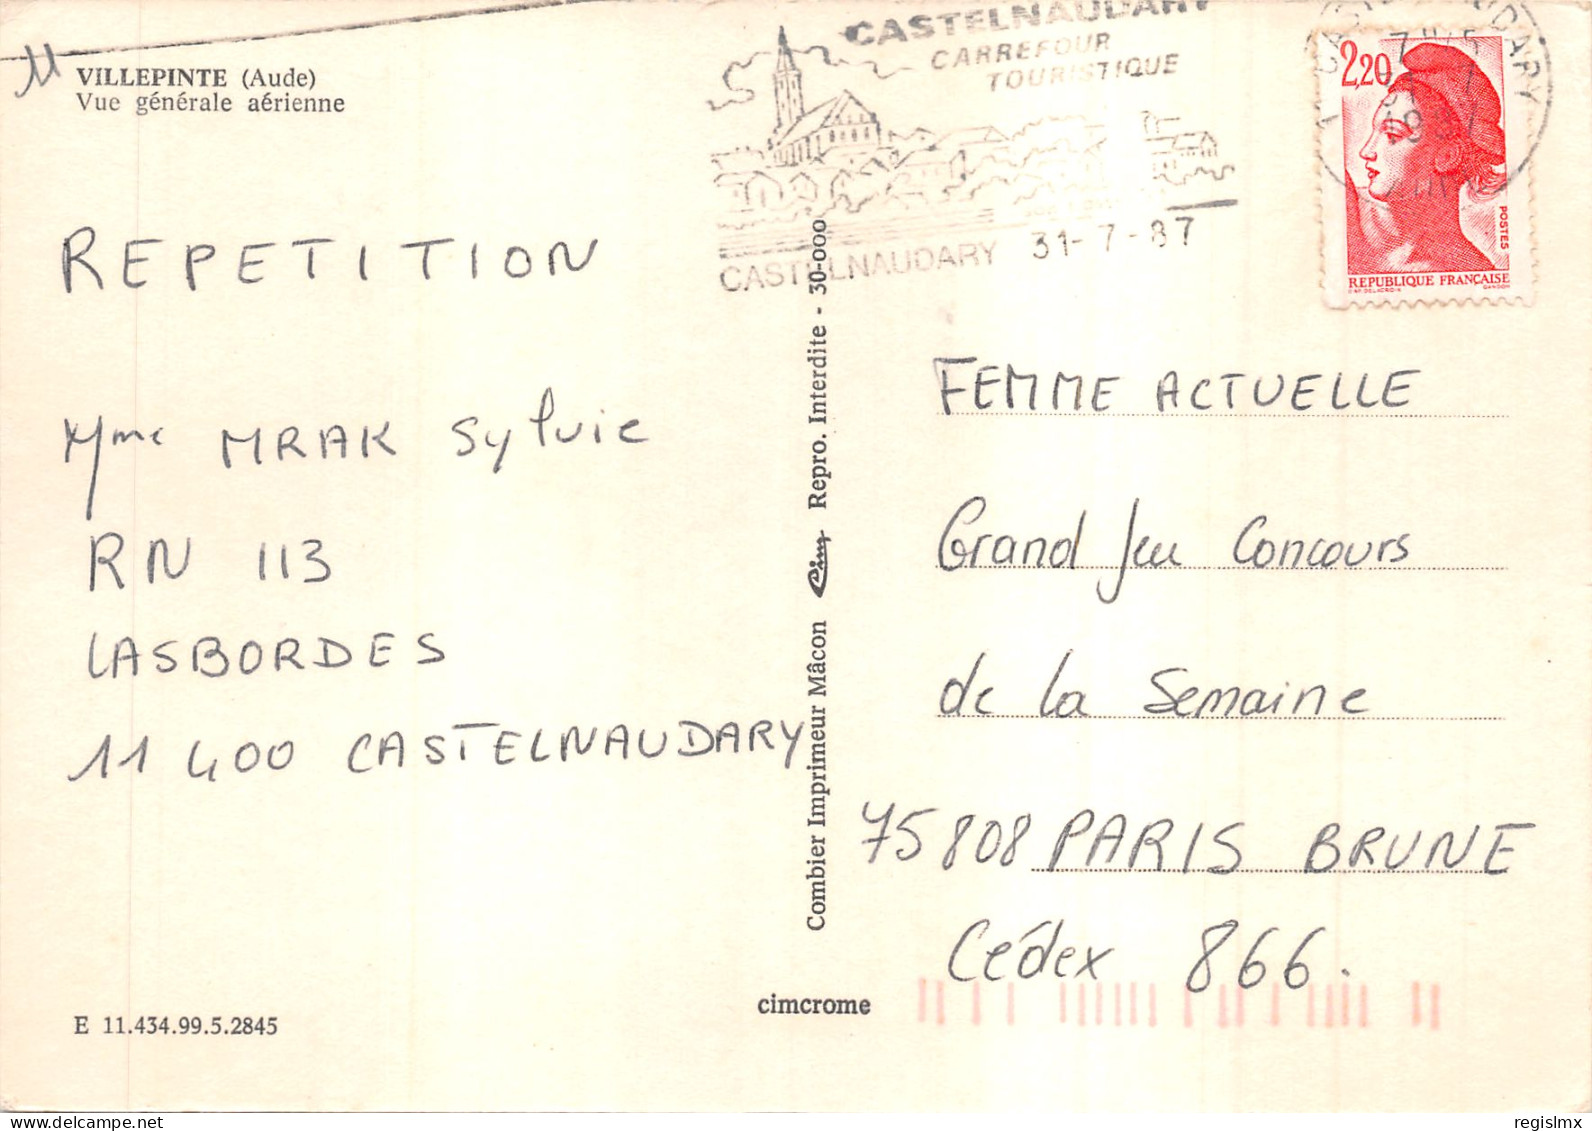 VILLEPINTE (Aude)
Vue générale aérienne
CASTELNAUDARY
CARREFOUR
TOURISTIQUE
CASTELNAUDARY 31-7-87
CASTELNAUDARY
2,20
POSTES
REPUBLIQUE FRANÇAISE
REPETITION
Mme MRAK Sylvie
RN 113
LASBORDES
11 400 CASTELNAUDARY
E 11.434.99.5.2845
Combier Imprimeur Mâcon Cim Repro. Interdite - 30-000
cimcrome
FEMME ACTUELLE
Grand Jeu Concours
de la Semaine
75808 PARIS BRUNE
Cédex 866.
regislmx